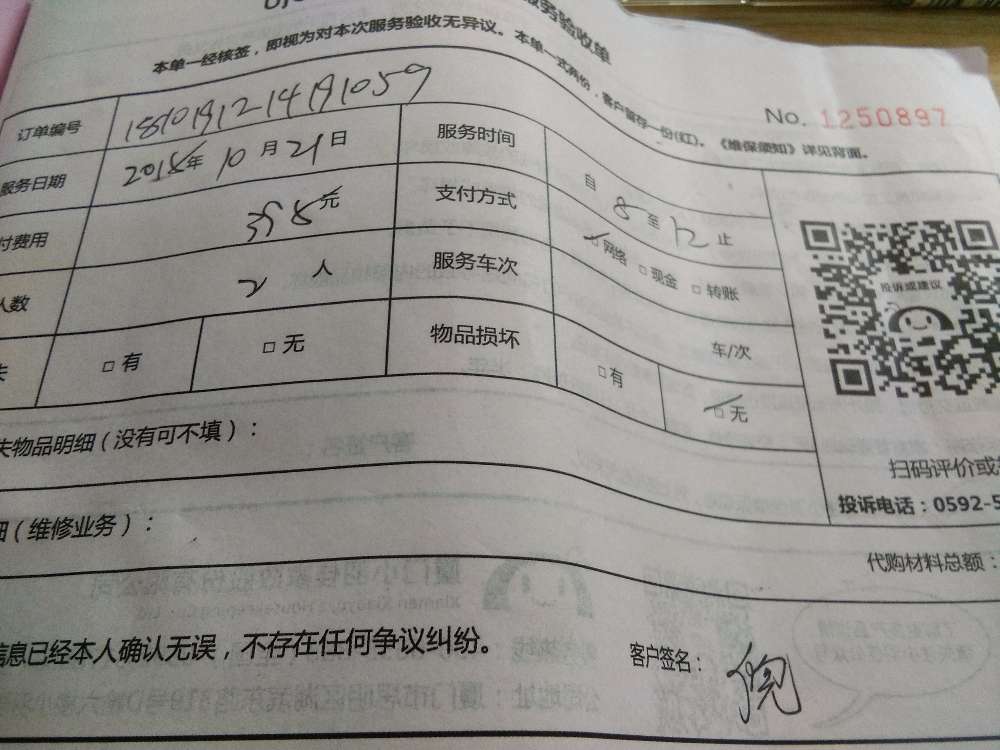 服务验收单
本单一经核签，即视为对本次服务验收无异议。本单一式两份，客户留存一份(红)。《维保须知》详见背面。
No. 1250897
订单编号 1810191214191059
服务日期 2018年 10 月 21 日 服务时间 自 8 至 12 止
付费用 358 元 支付方式 □ 网络 □ 现金 □ 转账
人数 2 人 服务车次 车/次
□ 有 □ 无 物品损坏 □ 有 □ 无
投诉或建议
失物品明细（没有可不填）：
扫码评价或
投诉电话：0592-5
细（维修业务）：
代购材料总额：
信息已经本人确认无误，不存在任何争议纠纷。
客户签名： 倪